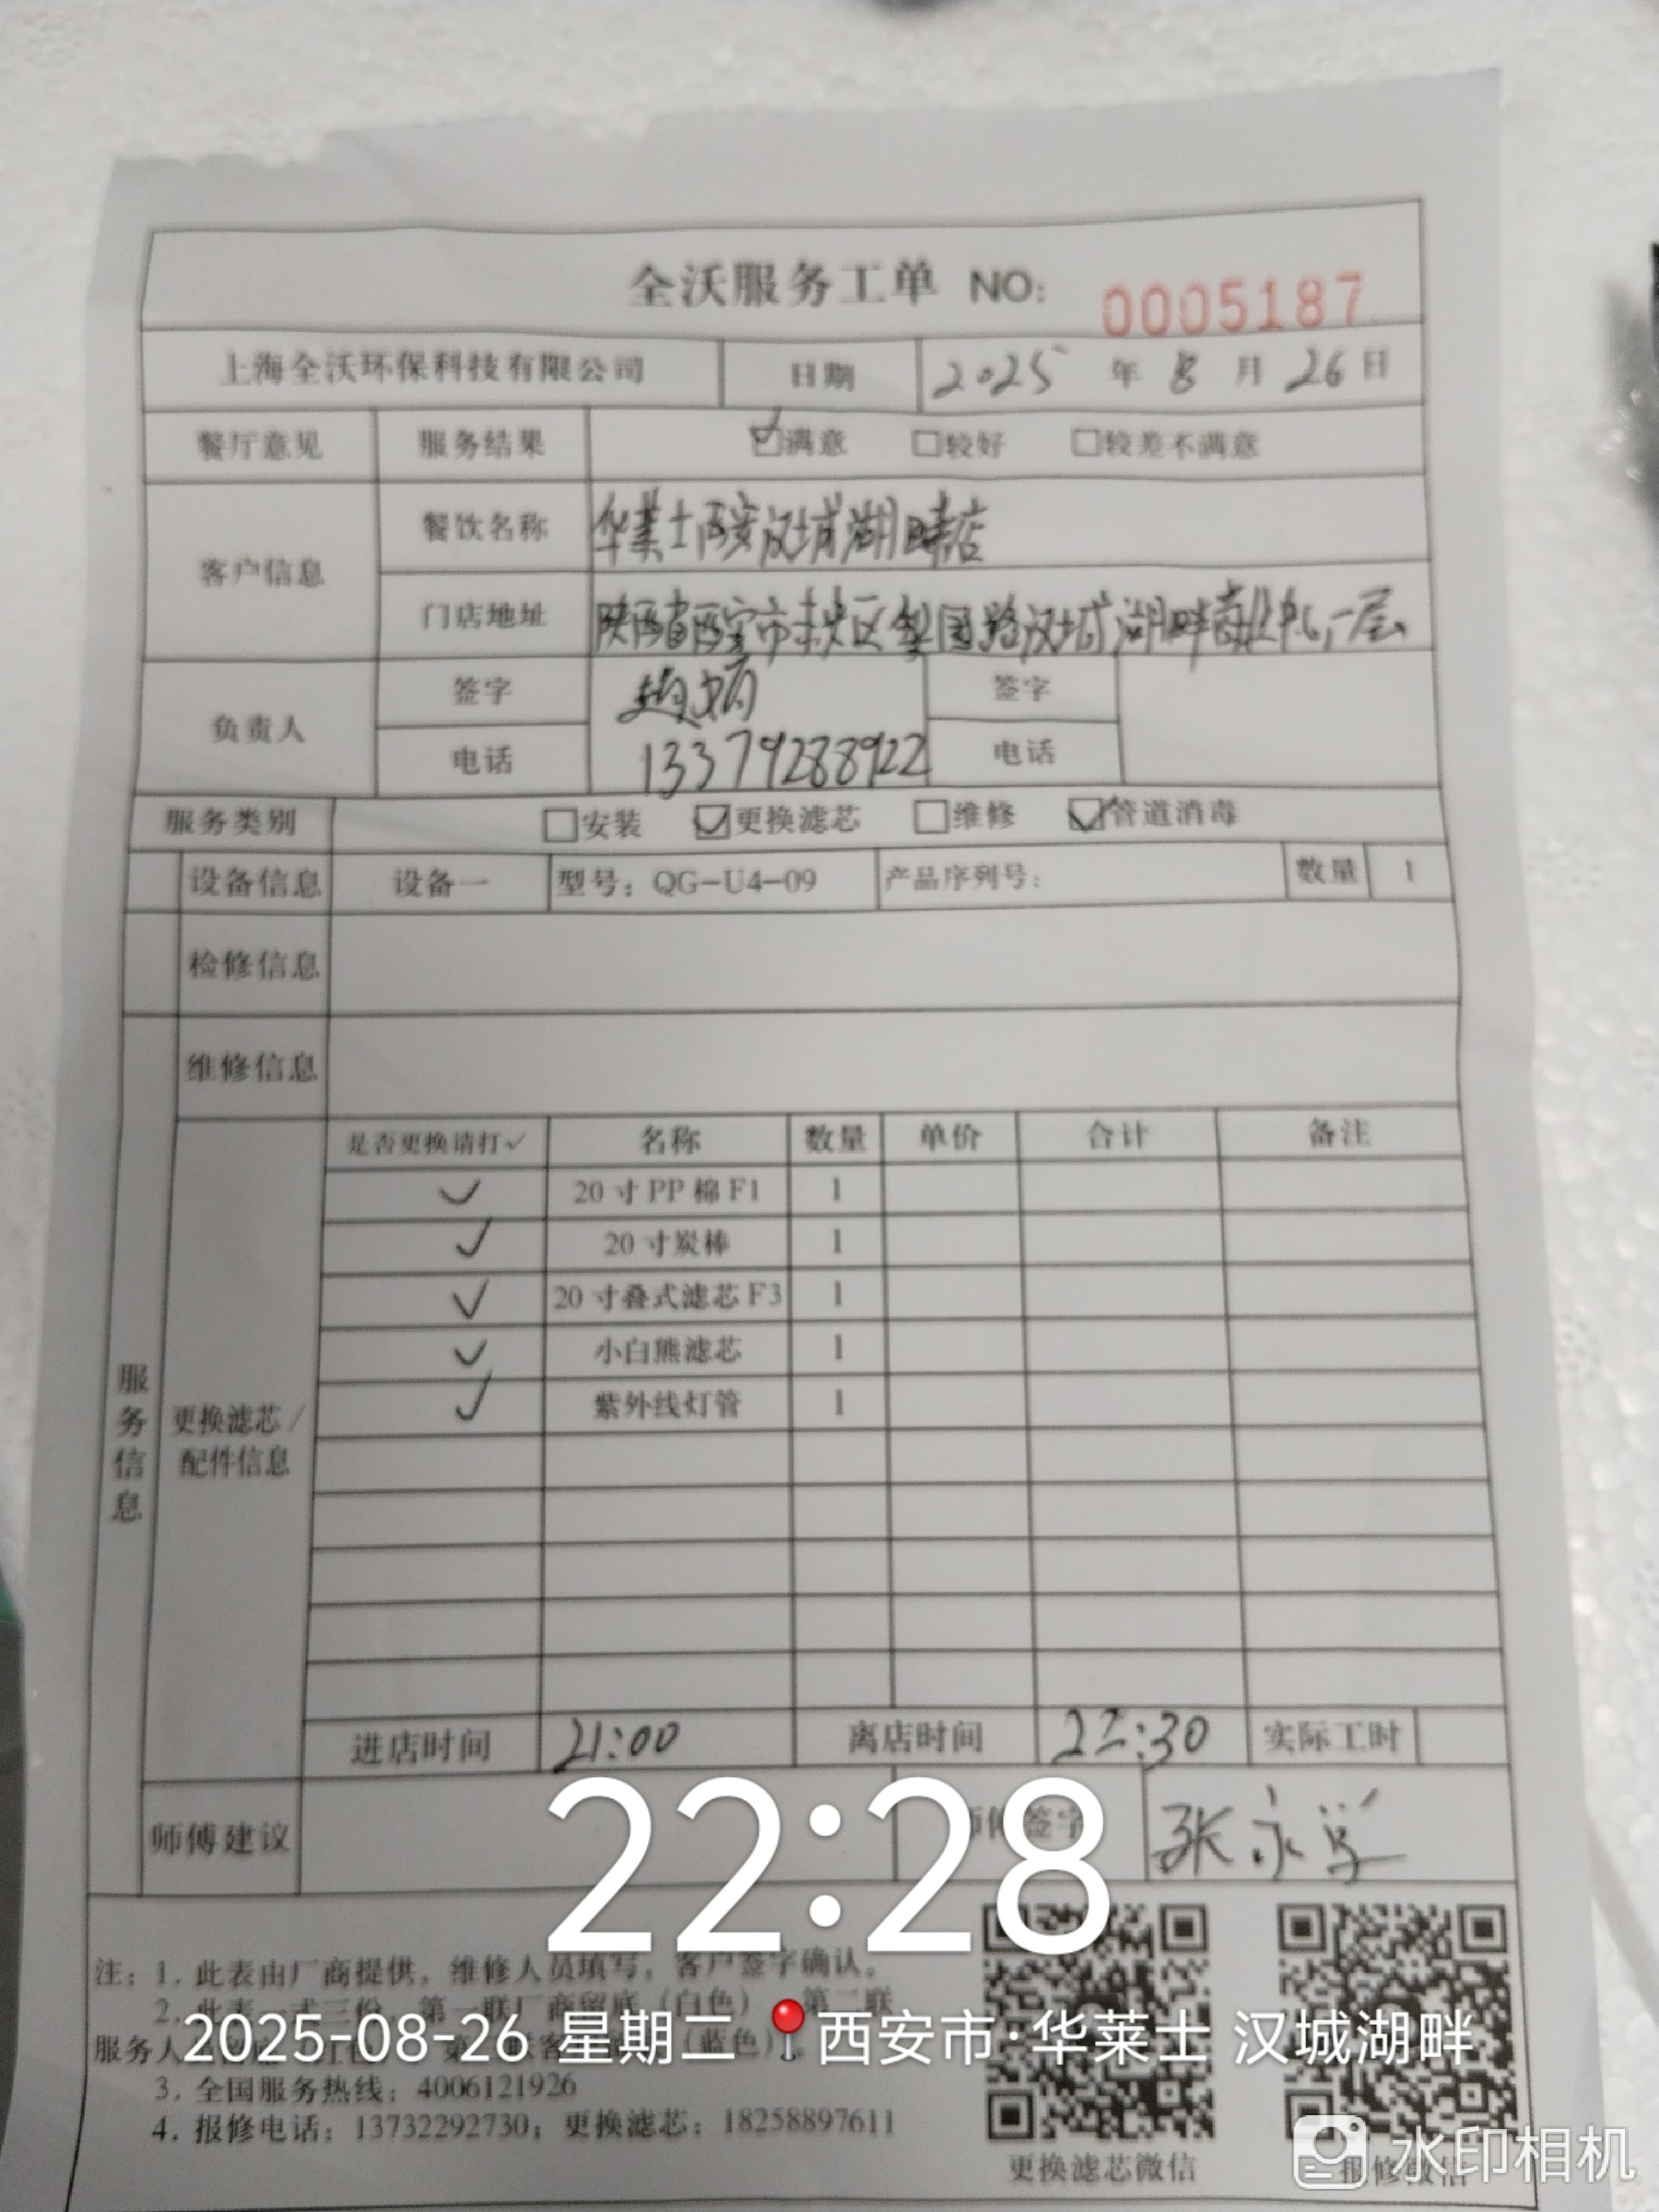 全沃服务工单 NO: 0005187
上海全沃环保科技有限公司 日期 2025 年 8 月 26 日
餐厅意见 服务结果 ☑满意 □较好 □较差不满意
客户信息 餐饮名称 华莱士西安汉城湖畔店
门店地址 陕西省西安市未央区梨园路汉城湖畔商业中心一层
负责人 签字 赵 签字
电话 13379288922 电话
服务类别 □安装 ☑更换滤芯 □维修 ☑管道消毒
设备信息 设备一 型号: QG-U4-09 产品序列号: 数量 1
检修信息
维修信息
服务信息
更换滤芯/
配件信息
是否更换请打✓ 名称 数量 单价 合计 备注
✓ 20寸PP棉F1 1
✓ 20寸炭棒 1
✓ 20寸叠式滤芯F3 1
✓ 小白熊滤芯 1
✓ 紫外线灯管 1
进店时间 21:00 离店时间 22:30 实际工时
师傅建议 师傅签字 张永学
22:28
注: 1. 此表由厂商提供, 维修人员填写, 客户签字确认。
2. 此表一式三份, 第一联厂商留底(白色) 第二联
服务人 (蓝色)。
2025-08-26 星期二 西安市·华莱士 汉城湖畔
3. 全国服务热线: 4006121926
4. 报修电话: 13732292730; 更换滤芯: 18258897611
更换滤芯微信 报修微信
水印相机